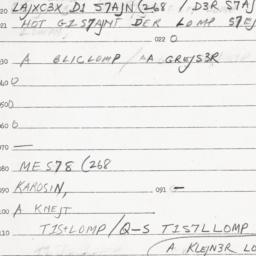 020 LAJXC3X D1 S7AJN (268 / D3R S7AJ
HOT GIS7AJNT DER LOMP S7EJ
022 0
030 A BLICLOMP / A GREJS3R
040 0
050 0
060 0
070 —
080 MES78 (268
090 KAROSIN, 091 —
100 A KNEJT
110 TIS+LOMP / Q-S TIS7LLOMP
(A KLEJN3R LO